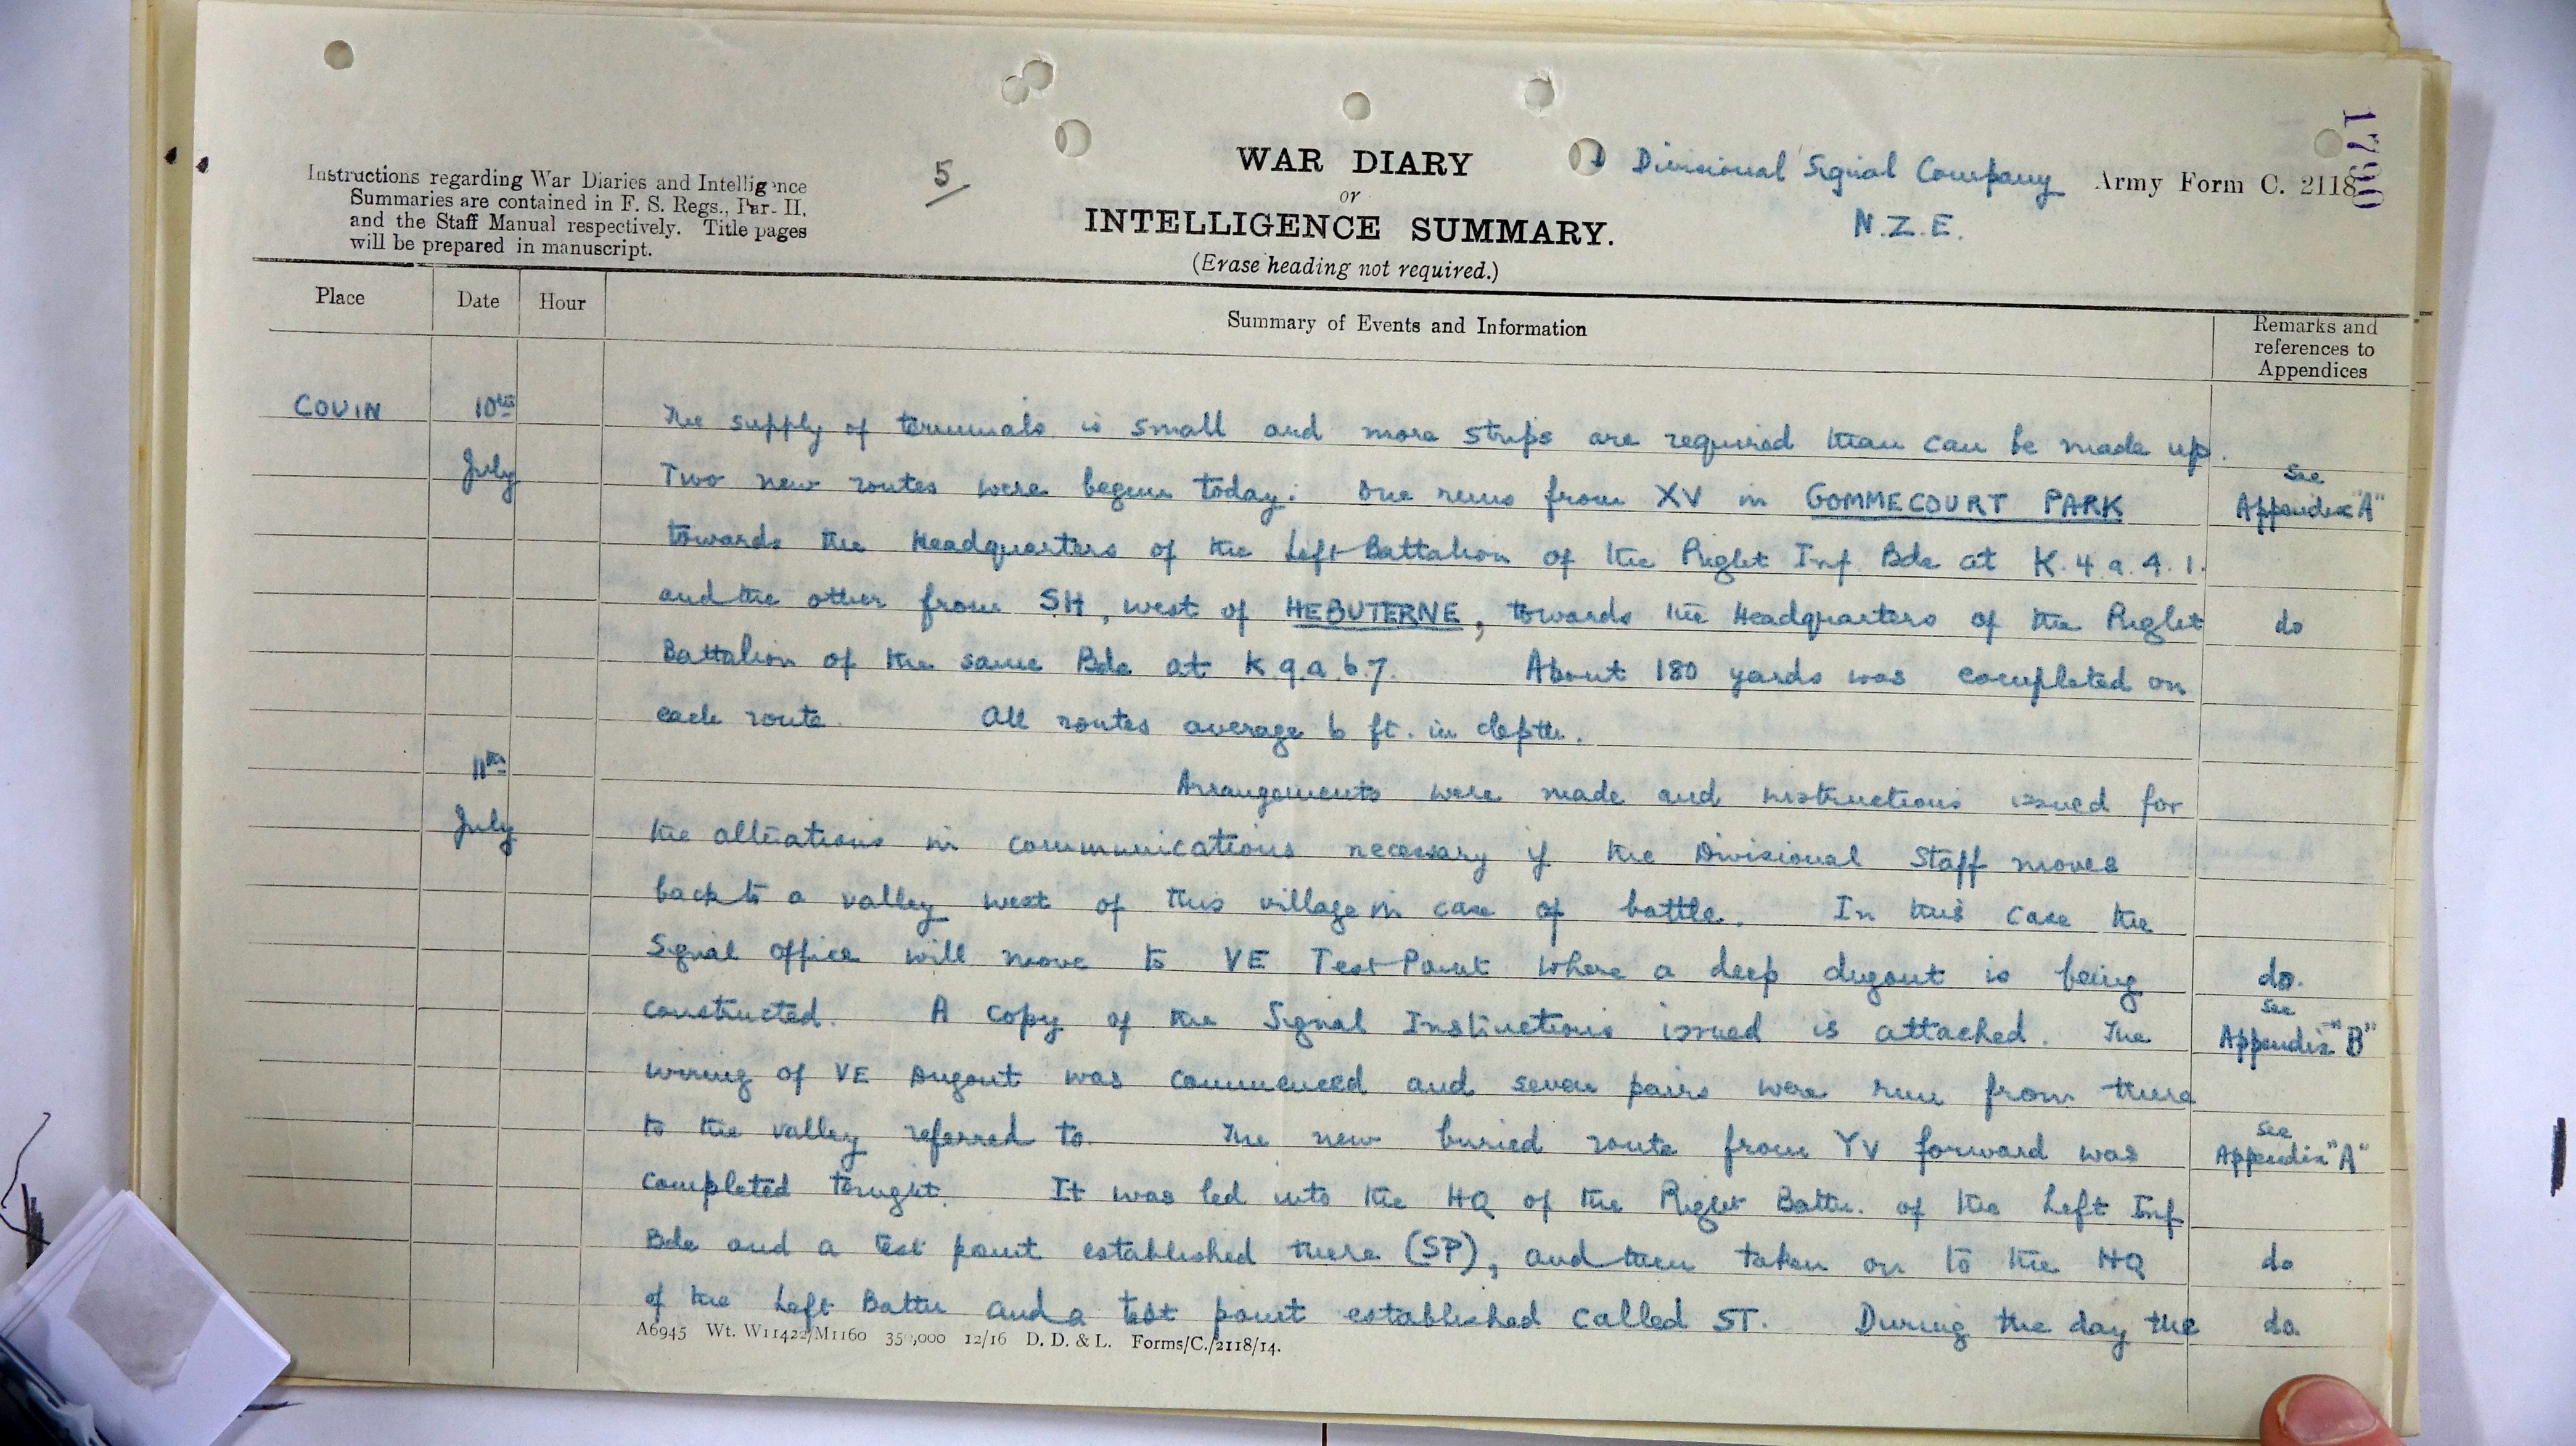 Instructions regarding War Diaries and Intelligence
Summaries are contained in F. S. Regs., Par. II.
and the Staff Manual respectively. Title pages
will be prepared in manuscript.
5/
WAR DIARY
or
INTELLIGENCE SUMMARY.
(Erase heading not required.)
Divisional Signal Company
N.Z.E.
Army Form C. 2118
1790
Place Date Hour Summary of Events and Information Remarks and
references to
Appendices
COUIN 10th The supply of terminals is small and more strips are required than can be made up.
July Two new routes were begun today: One runs from XV in GOMMECOURT PARK See Appendix "A"
towards the Headquarters of the Left Battalion of the Right Inf. Bde at K.4.a.4.1.
and the other from SH, west of HEBUTERNE, towards the Headquarters of the Right do
Battalion of the same Bde at K 9.a.6.7. About 180 yards was completed on
each route. All routes average 6 ft. in depth.
11th Arrangements were made and instructions issued for
July the alterations in communications necessary if the Divisional Staff moves
back to a valley west of this village in case of battle. In this case the
Signal Office will move to VE Test Point where a deep dugout is being do.
constructed. A copy of the Signal Instructions issued is attached. The See Appendix "B"
wiring of VE Dugout was commenced and seven pairs were run from there
to the valley referred to. The new buried route from YV forward was See Appendix "A"
completed tonight. It was led into the HQ of the Right Battn. of the Left Inf
Bde and a test point established there (SP), and then taken on to the HQ do
of the Left Battn and a test point established called ST. During the day the do.
A6945 Wt. W11422/M1160 350,000 12/16 D. D. & L. Forms/C./2118/14.